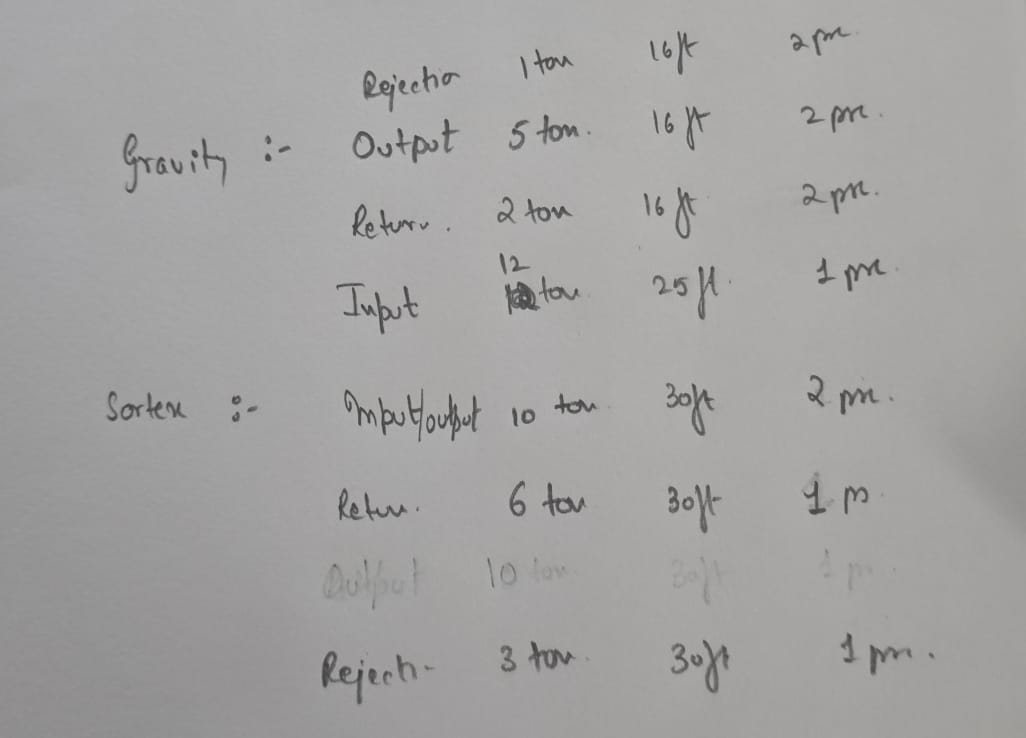 Rejection 1 ton 16 ft 2 pc.
Gravity :- Output 5 ton. 16 ft 2 pc.
Return. 2 ton 16 ft 2 pc.
Input 12 ton 25 ft. 1 pc.
Sortex :- Input/output 10 ton 30ft 2 pc.
Return. 6 ton 30ft 1 p
Output 10 ton 30ft 1 p.
Reject- 3 ton 30ft 1 pc.